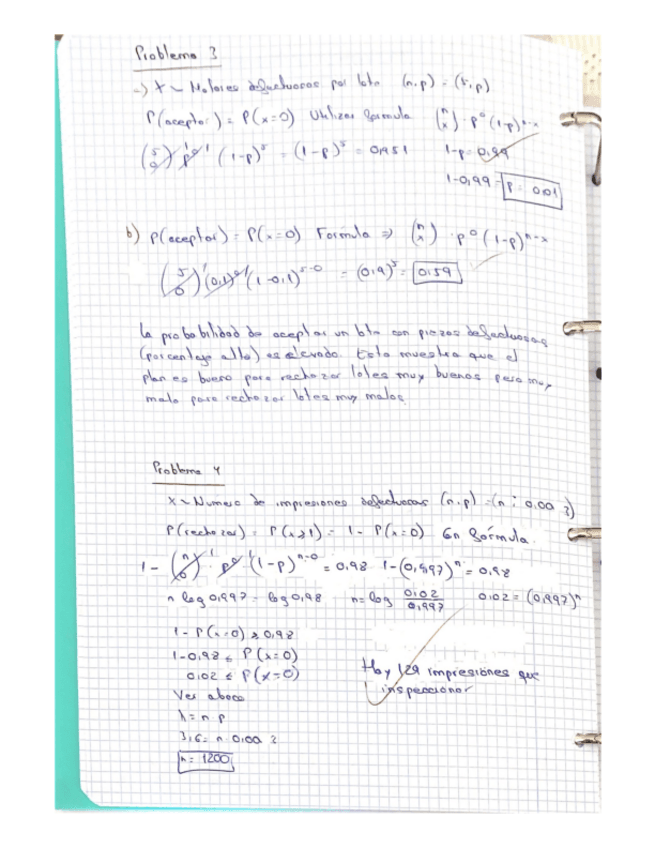 Problema 3
a) X ~ Motores defectuosos por lote (n,p) = (5,p)
P(aceptar) = P(x=0) Utilizar formula (n x) · p⁰ (1-p)ⁿ⁻ˣ
(5 0) p⁰ (1-p)⁵ = (1-p)⁵ = 0,951 1-p=0,99
1-0,99 = p = 0,01
b) P(aceptar) = P(x=0) Formula ⇒ (n x) · p⁰ (1-p)ⁿ⁻ˣ
(5 0) (0,1)⁰ (1-0,1)⁵⁻⁰ = (0,9)⁵ = 0,59
La probabilidad de aceptar un lote con piezas defectuosas
(porcentaje alto) es elevado. Esto muestra que el
plan es bueno para rechazar lotes muy buenos pero muy
malo para rechazar lotes muy malos.
Problema 4
X ~ Numero de impresiones defectuosas (n,p) = (n; 0,003)
P(rechazar) = P(x≥1) = 1 - P(x=0) En fórmula.
1 - (n 0) · p⁰ (1-p)ⁿ⁻⁰ = 0,98 1-(0,997)ⁿ = 0,98
n log 0,997 = log 0,98 n = log 0,02/0,997 0,02 = (0,997)ⁿ
1 - P(x=0) ≥ 0,98
1-0,98 ≤ P(x=0)
0,02 ≤ P(x=0)
Hay 129 impresiones que
inspeccionar
Ver abaco
λ = n · p
3,6 = n · 0,003
n = 1200